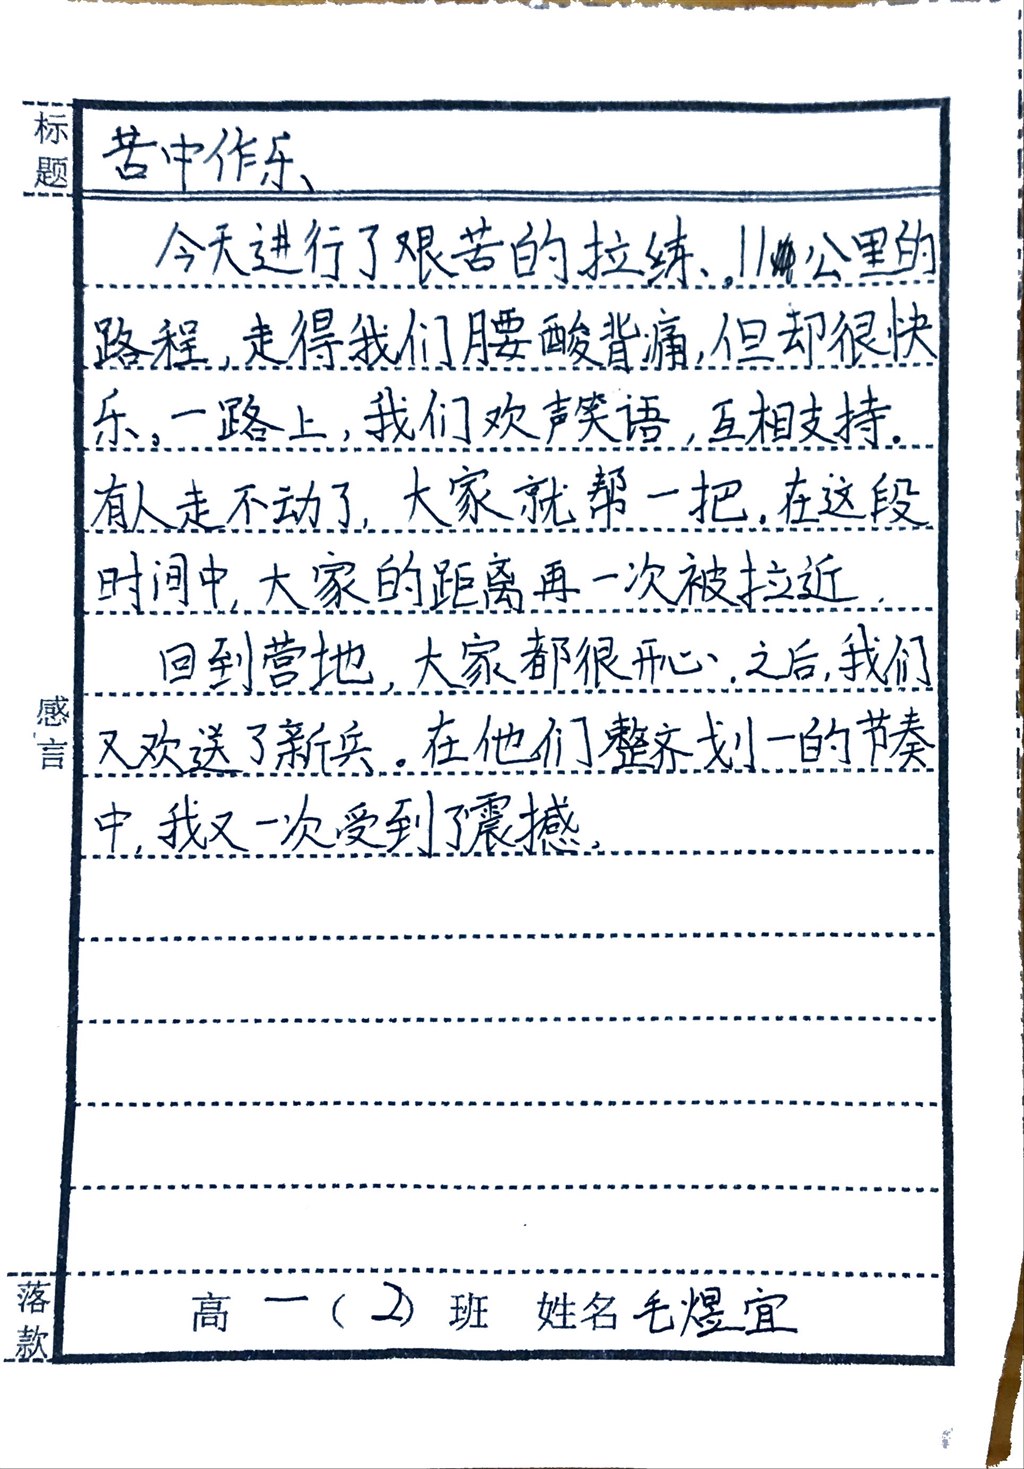 标题
苦中作乐
今天进行了艰苦的拉练、11公里的
路程,走得我们腰酸背痛,但却很快
乐。一路上,我们欢声笑语,互相支持.
有人走不动了,大家就帮一把.在这段
时间中,大家的距离再一次被拉近.
回到营地,大家都很开心.之后,我们
又欢送了新兵.在他们整齐划一的节奏
中,我又一次受到了震撼.
感言
落款
高一(2)班 姓名毛煜宜